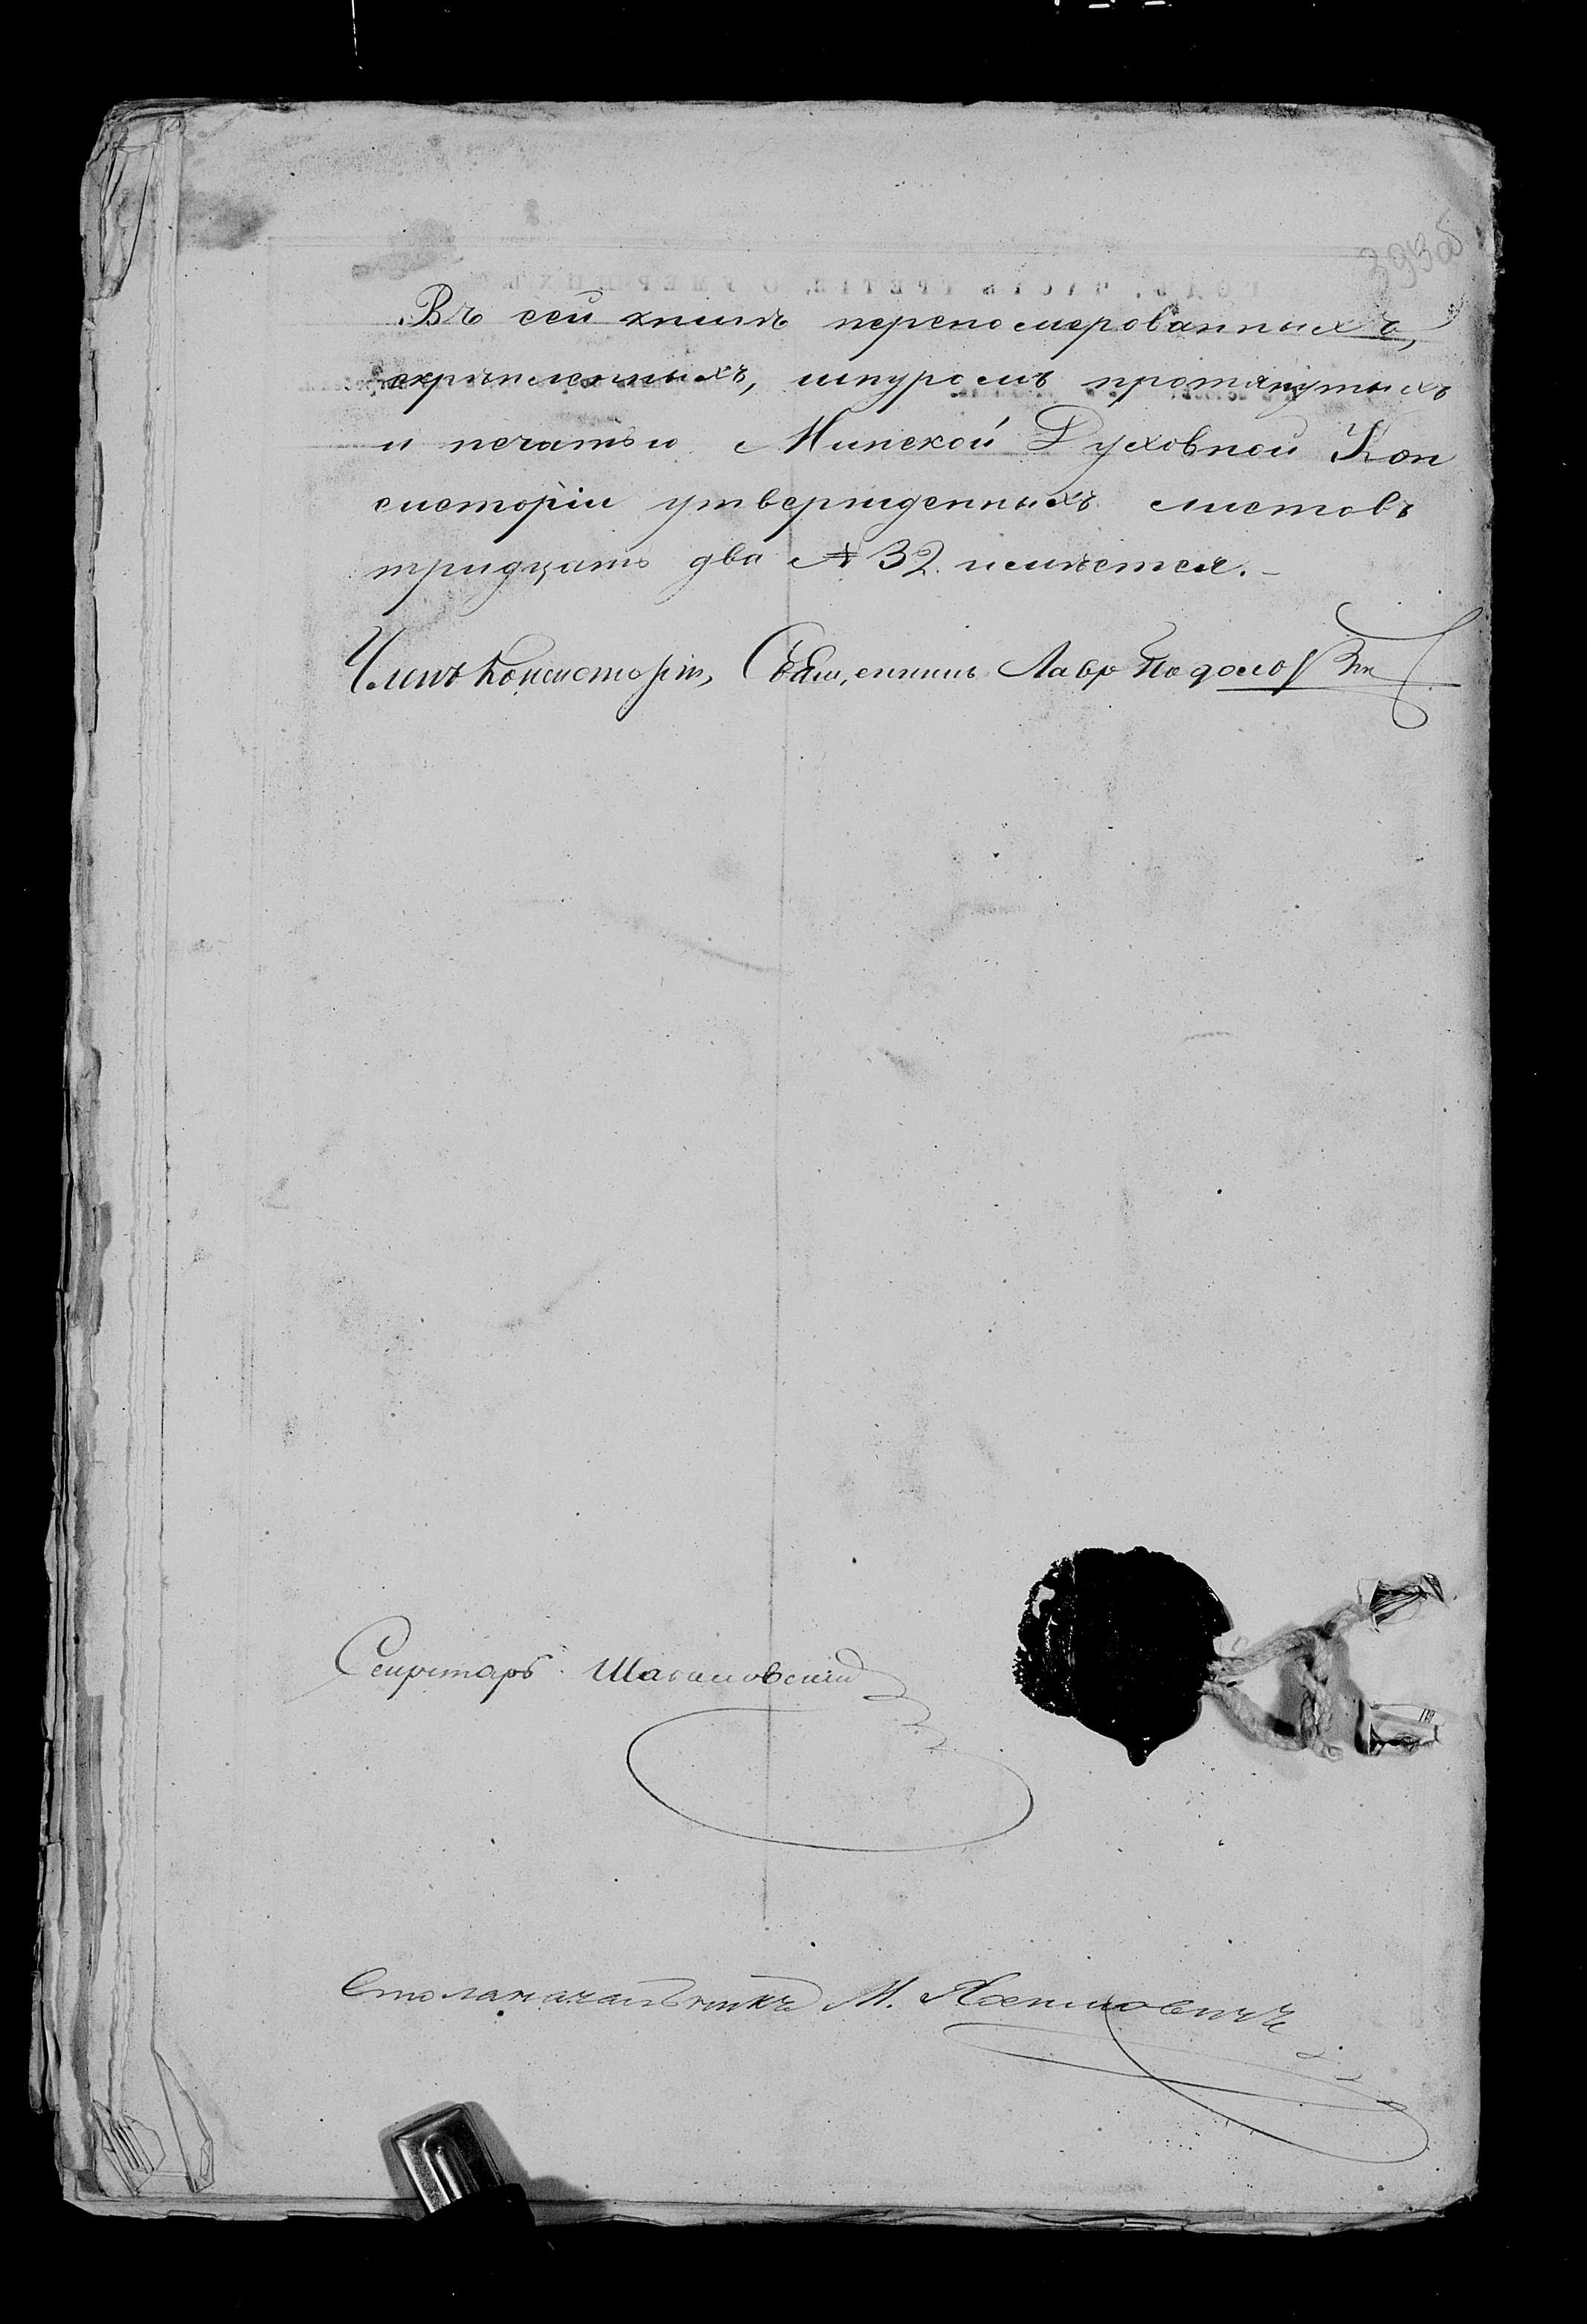 393об
Въ сей книгѣ перенумерованныхъ,
скрѣпленныхъ, шнуромъ протянутыхъ
и печатью Минской Духовной Кон
систоріи утвержденныхъ листовъ
тридцать два № 32 имѣется.
Членъ Консисторіи, Священникъ Лавръ
Секретарь
Столоначальникъ М.